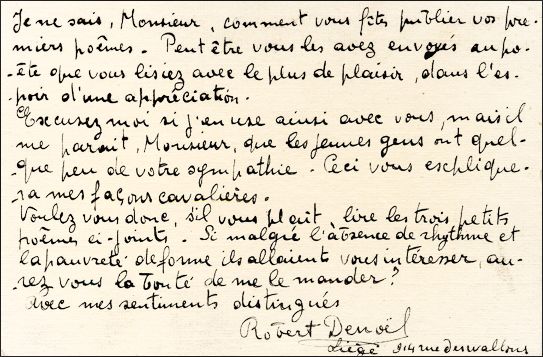 Je ne sais, Monsieur, comment vous fîtes publier vos pre-
miers poèmes. Peut être vous les avez envoyés au po-
-ète que vous lisiez avec le plus de plaisir, dans l'es-
-poir d'une appréciation.
Excusez moi si j'en use ainsi avec vous, mais il
me paraît, Monsieur, que les jeunes gens ont quel-
-que peu de votre sympathie. Ceci vous explique-
-ra mes façons cavalières.
Voulez vous donc, s'il vous plaît, lire les trois petits
poèmes ci-joints. Si malgré l'absence de rhythme et
la pauvreté de forme ils allaient vous intéresser, au-
rez vous la bonté de me le mander?
Avec mes sentiments distingués
Robert Denoël
Liège rue des wallons